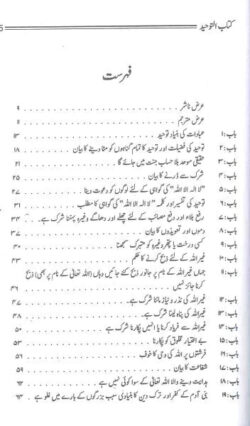 کتاب التوحید 5
فہرست
عرض ناشر ۹
عرض مترجم
باب:۱ عبادات کی بنیاد توحید ۱۳
باب:۲ توحید کی فضیلت اور توحید کا تمام گناہوں کو مٹا دینے کا بیان ۱۸
باب:۳ حقیقی موحد بلا حساب جنت میں جائے گا
باب:۴ شرک سے ڈرنے کا بیان
باب:۵ "لا الہ الا اللہ" کی گواہی کے لئے لوگوں کو دعوت دینا ۲۷
باب:۶ توحید کی تفسیر اور کلمہ "لا الہ الا اللہ" کی گواہی کا مطلب
باب:۷ رفع بلاء اور رفع مصائب کے لئے چھلے اور دھاگے وغیرہ پہننا شرک ہے۔
باب:۸ دموں اور تعویذوں کا بیان
باب:۹ کسی درخت یا پتھر وغیرہ کو متبرک سمجھنا
باب:۱۰ غیر اللہ کے لئے ذبح کرنے کا حکم
باب:۱۱ جہاں غیر اللہ کے نام پر جانور ذبح کئے جائیں وہاں (اللہ تعالی کے نام پر بھی) ذبح
کرنا جائز نہیں
باب:۱۲ غیر اللہ کی نذر و نیاز ماننا شرک ہے
باب:۱۳ غیر اللہ کی پناہ لینا شرک ہے
باب:۱۴ غیر اللہ سے فریاد کرنا یا انہیں پکارنا شرک ہے
باب:۱۵ بے اختیار مخلوق کو پکارنا ۵۲
باب:۱۶ فرشتوں پر اللہ کی وحی کا خوف
باب:۱۷ شفاعت کا بیان ۵۹
باب:۱۸ ہدایت دینے والا اللہ تعالی کے سوا کوئی نہیں ہے
باب:۱۹ بنی آدم کے کفر اور ترک دین کا بنیادی سبب بزرگوں کے بارے میں غلو ہے